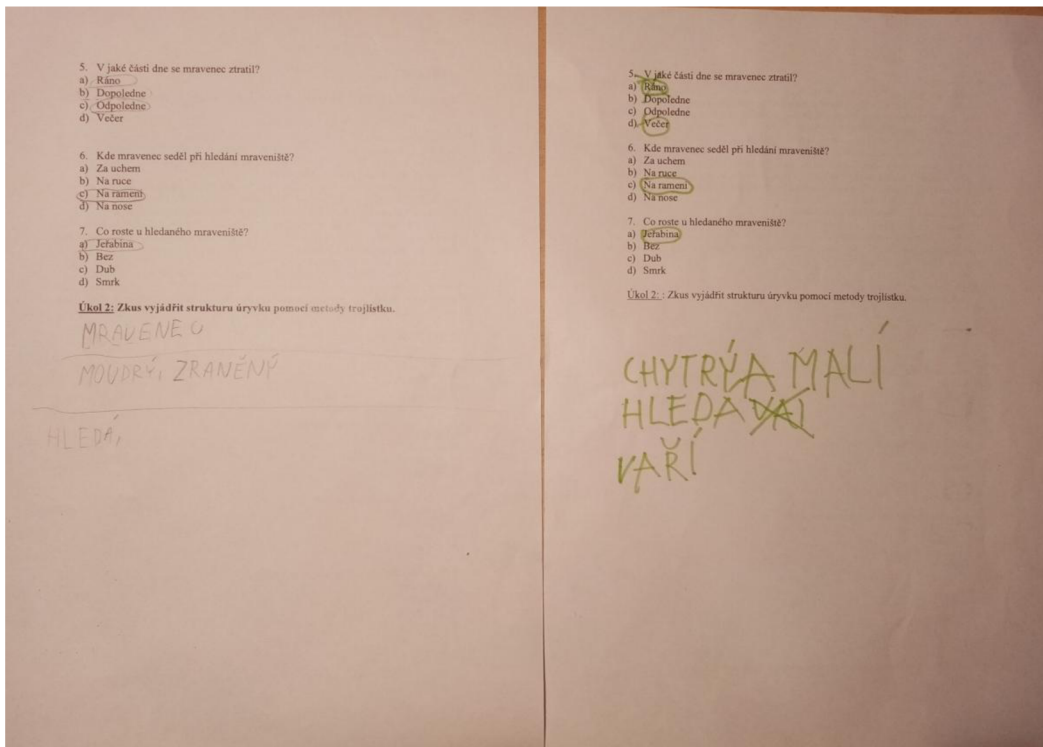 5. V jaké části dne se mravenec ztratil?
a) Ráno
b) Dopoledne
c) Odpoledne
d) Večer
6. Kde mravenec seděl při hledání mraveniště?
a) Za uchem
b) Na ruce
c) Na rameni
d) Na nose
7. Co roste u hledaného mraveniště?
a) Jeřabina
b) Bez
c) Dub
d) Smrk
Úkol 2: Zkus vyjádřit strukturu úryvku pomocí metody trojlístku.
MRAVENEC
MOUDRÝ, ZRANĚNÝ
HLEDÁ,
5. V jaké části dne se mravenec ztratil?
a) Ráno
b) Dopoledne
c) Odpoledne
d) Večer
6. Kde mravenec seděl při hledání mraveniště?
a) Za uchem
b) Na ruce
c) Na rameni
d) Na nose
7. Co roste u hledaného mraveniště?
a) Jeřabina
b) Bez
c) Dub
d) Smrk
Úkol 2: : Zkus vyjádřit strukturu úryvku pomocí metody trojlístku.
CHYTRÝ A MALÍ
HLEDA
VAŘÍ